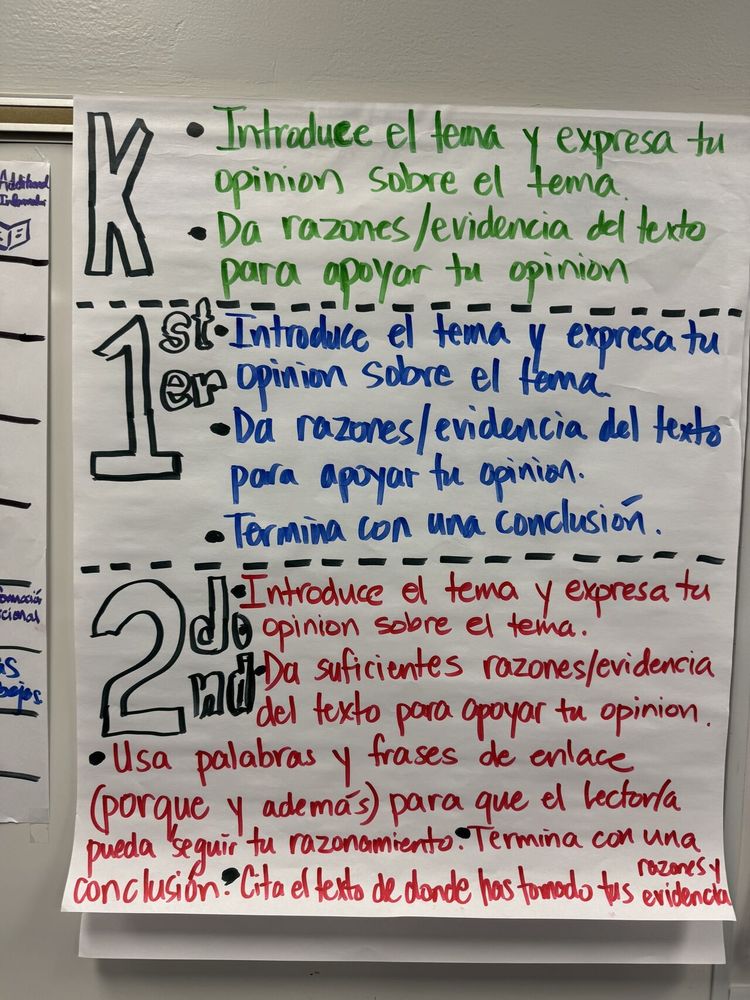 Additional
K
• Introduce el tema y expresa tu
opinion sobre el tema.
• Da razones/evidencia del texto
para apoyar tu opinion
1st
er
• Introduce el tema y expresa tu
opinion sobre el tema.
• Da razones/evidencia del texto
para apoyar tu opinion.
• Termina con una conclusión.
2do
nd
• Introduce el tema y expresa tu
opinion sobre el tema.
• Da suficientes razones/evidencia
del texto para apoyar tu opinion.
• Usa palabras y frases de enlace
(porque y además) para que el lector/a
pueda seguir tu razonamiento. • Termina con una
conclusión. • Cita el texto de donde has tomado tus razones y
evidencia